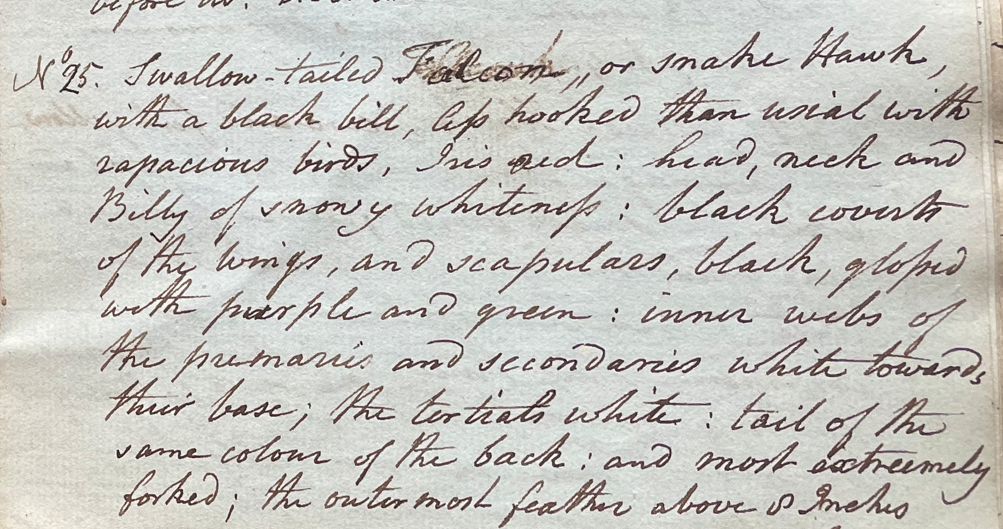 before
No 25. Swallow-tailed Falcon,, or snake Hawk,
with a black bill, less hooked than usial with
rapacious birds, Iris red : head, neck and
Billy of snowy whiteness : black coverts
of the wings, and scapulars, black, glossed
with purple and green : inner webs of
the premaries and secondaries white towards
their base; the tertials white : tail of the
same colour of the back : and most extreemely
forked; the outermost feather above 8 Inches